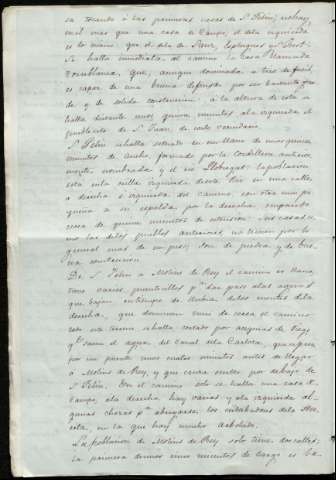 su tocante á las primeras casas de S. Felin; no hay
en él mas que una casa de Campo, á dela izquierda
es lo mismo que el ala de Sanz, Esplugues y S. Just.
Se halla inmediata al camino la Casa llamada
Torreblanca, que, aunque dominada a tiro de fusil,
es capaz de una buena defensa por ser bastante gran-
de y de solida construccion: á la altura de esta se
halla distante unos quince minutos ala izquierda el
pueblecito de S. Juan, de corto vecindario
S. Felin se halla situado en un llano de unos quince
minutos de ancho, formado por la Cordillera anterior-
mente nombrada y el rio Llobregat: la poblacion
esta en la orilla izquierda de este Rio en una calle
á derecha é izquierda del camino, con otra muy pe-
queña a su espalda por la derecha, ocupando
cerca de quince minutos de estension. Sus casas co-
mo las delos pueblos anteriores, no tienen por lo
general mas de un piso; son de piedra, y de bue-
na construccion.
De S. Felin a Molins de Rey el camino es llano,
tiene varios puentecillos pª dar paso alas aguas
que bajan entiempo de lluvias delos montes dela
derecha, que dominan muy de cerca el camino
este en la misma se halla cortado por acequias de riego
que toman el agua del Canal dela Carlota, que se pasa
por un puente unos cuatro minutos antes de llegar
á Molins de Rey, y que cruza tambien por debajo de
S. Felin. En el camino solo se halla una casa de
Campo, ala derecha hay varias y ala izquierda al-
gunas chozas pª abrigarse los trabajadores dela
esta, en la que hay mucho arbolado.
La poblacion de Molins de Rey solo tiene dos calles,
la primera de unos cinco minutos de largo es la